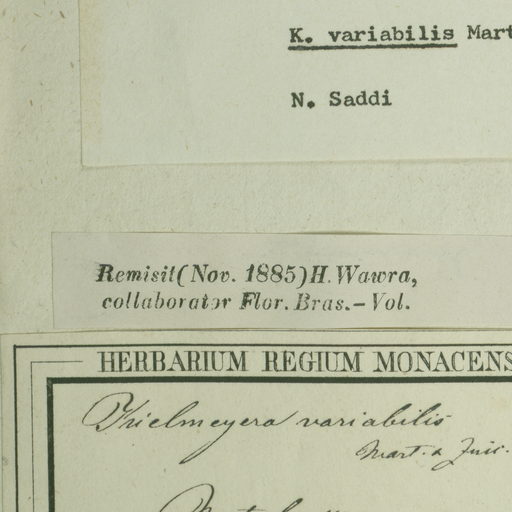 K. variabilis Mart
N. Saddi
Remisit (Nov. 1885) H. Wawra,
collaborator Flor. Bras. – Vol.
HERBARIUM REGIUM MONACENS
Kielmeyera variabilis
Mart. & Zucc.